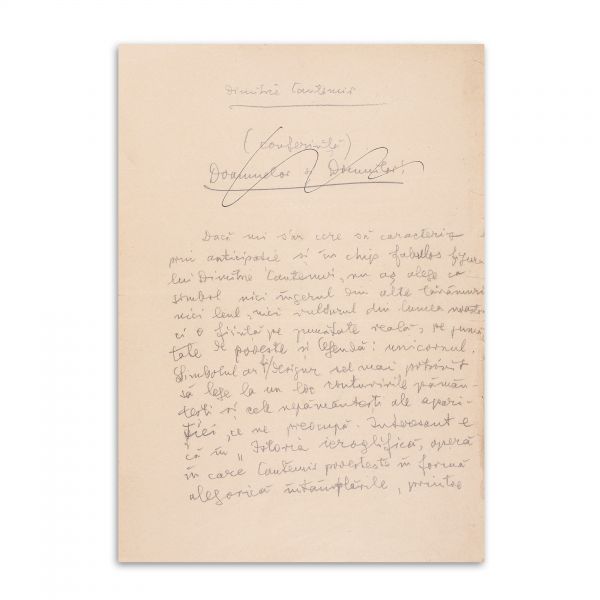 Dimitrie Cantemir
(conferință)
Doamnelor și Domnilor!
Dacă mi s'ar cere să caracteriz
prin anticipație și în chip fabulos figura
lui Dimitrie Cantemir, nu aș alege ca
simbol nici îngerul din alte tărâmuri
nici leul, nici vulturul din lumea noastră
ci o ființă pe jumătate reală, pe jumă
tate de poveste și legendă: unicornul.
Simbolul ar fi desigur cel mai potrivit
să lege la un loc contururile pămân-
tești și cele nepământești ale apari-
ției, ce ne preocupă. Interesant e
că în „Istoria ieroglifică, operă
în care Cantemir povestește în formă
alegorică întâmplările, printre